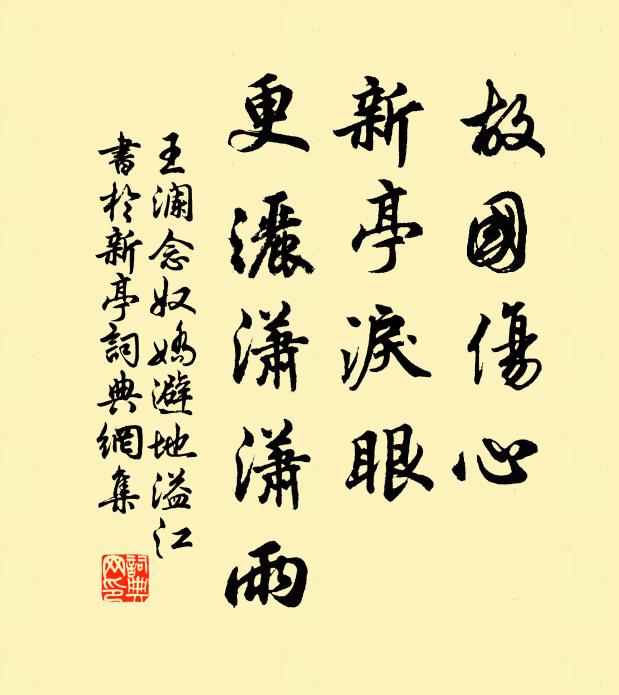 故國傷心
新亭淚眼
更灑瀟瀟雨
王澜念奴嬌避地溢江
書於新亭詞典網集
詞典
网印